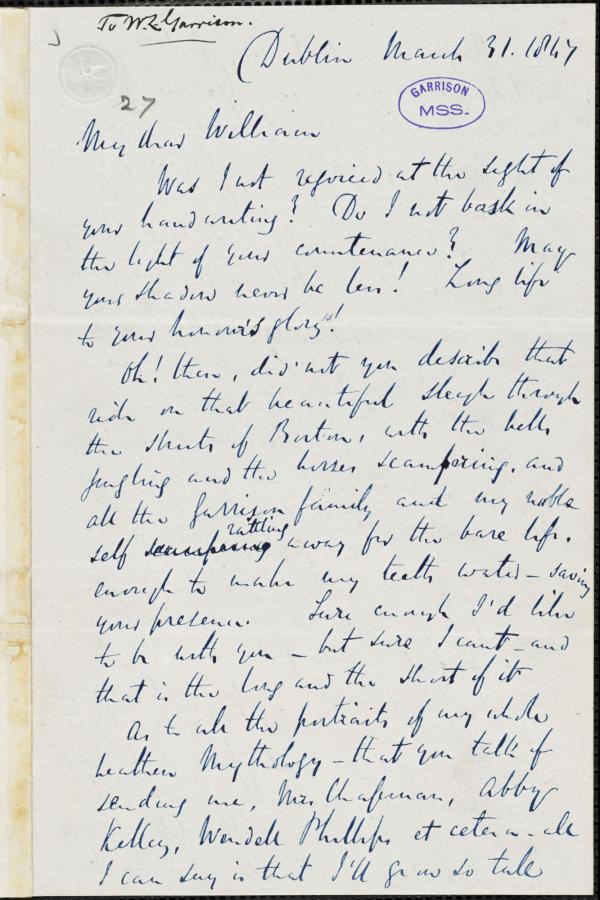 To W. L. Garrison.
Dublin March 31. 1847
GARRISON
MSS.
27
My dear William
Was I not rejoiced at the sight of
your handwriting? Do I not bask in
the light of your countenance? May
your shadow never be less! Long life
to your honour's glory!
Oh! then, did not you describe that
ride on that beautiful sleigh through
the streets of Boston, with the bells
jingling and the horses scampering, and
all the Garrison family and my noble
self rattling away for the bare life.
enough to make my teeth water - saving
your presence. Sure enough I'd like
to be with you - but sure I cant - and
that is the long and the short of it
As to all the portraits of my whole
heathen Mythology - that you talk of
sending me, Mrs Chapman, Abby
Kelley, Wendell Phillips et cetera - all
I can say is that I'll grow so tall